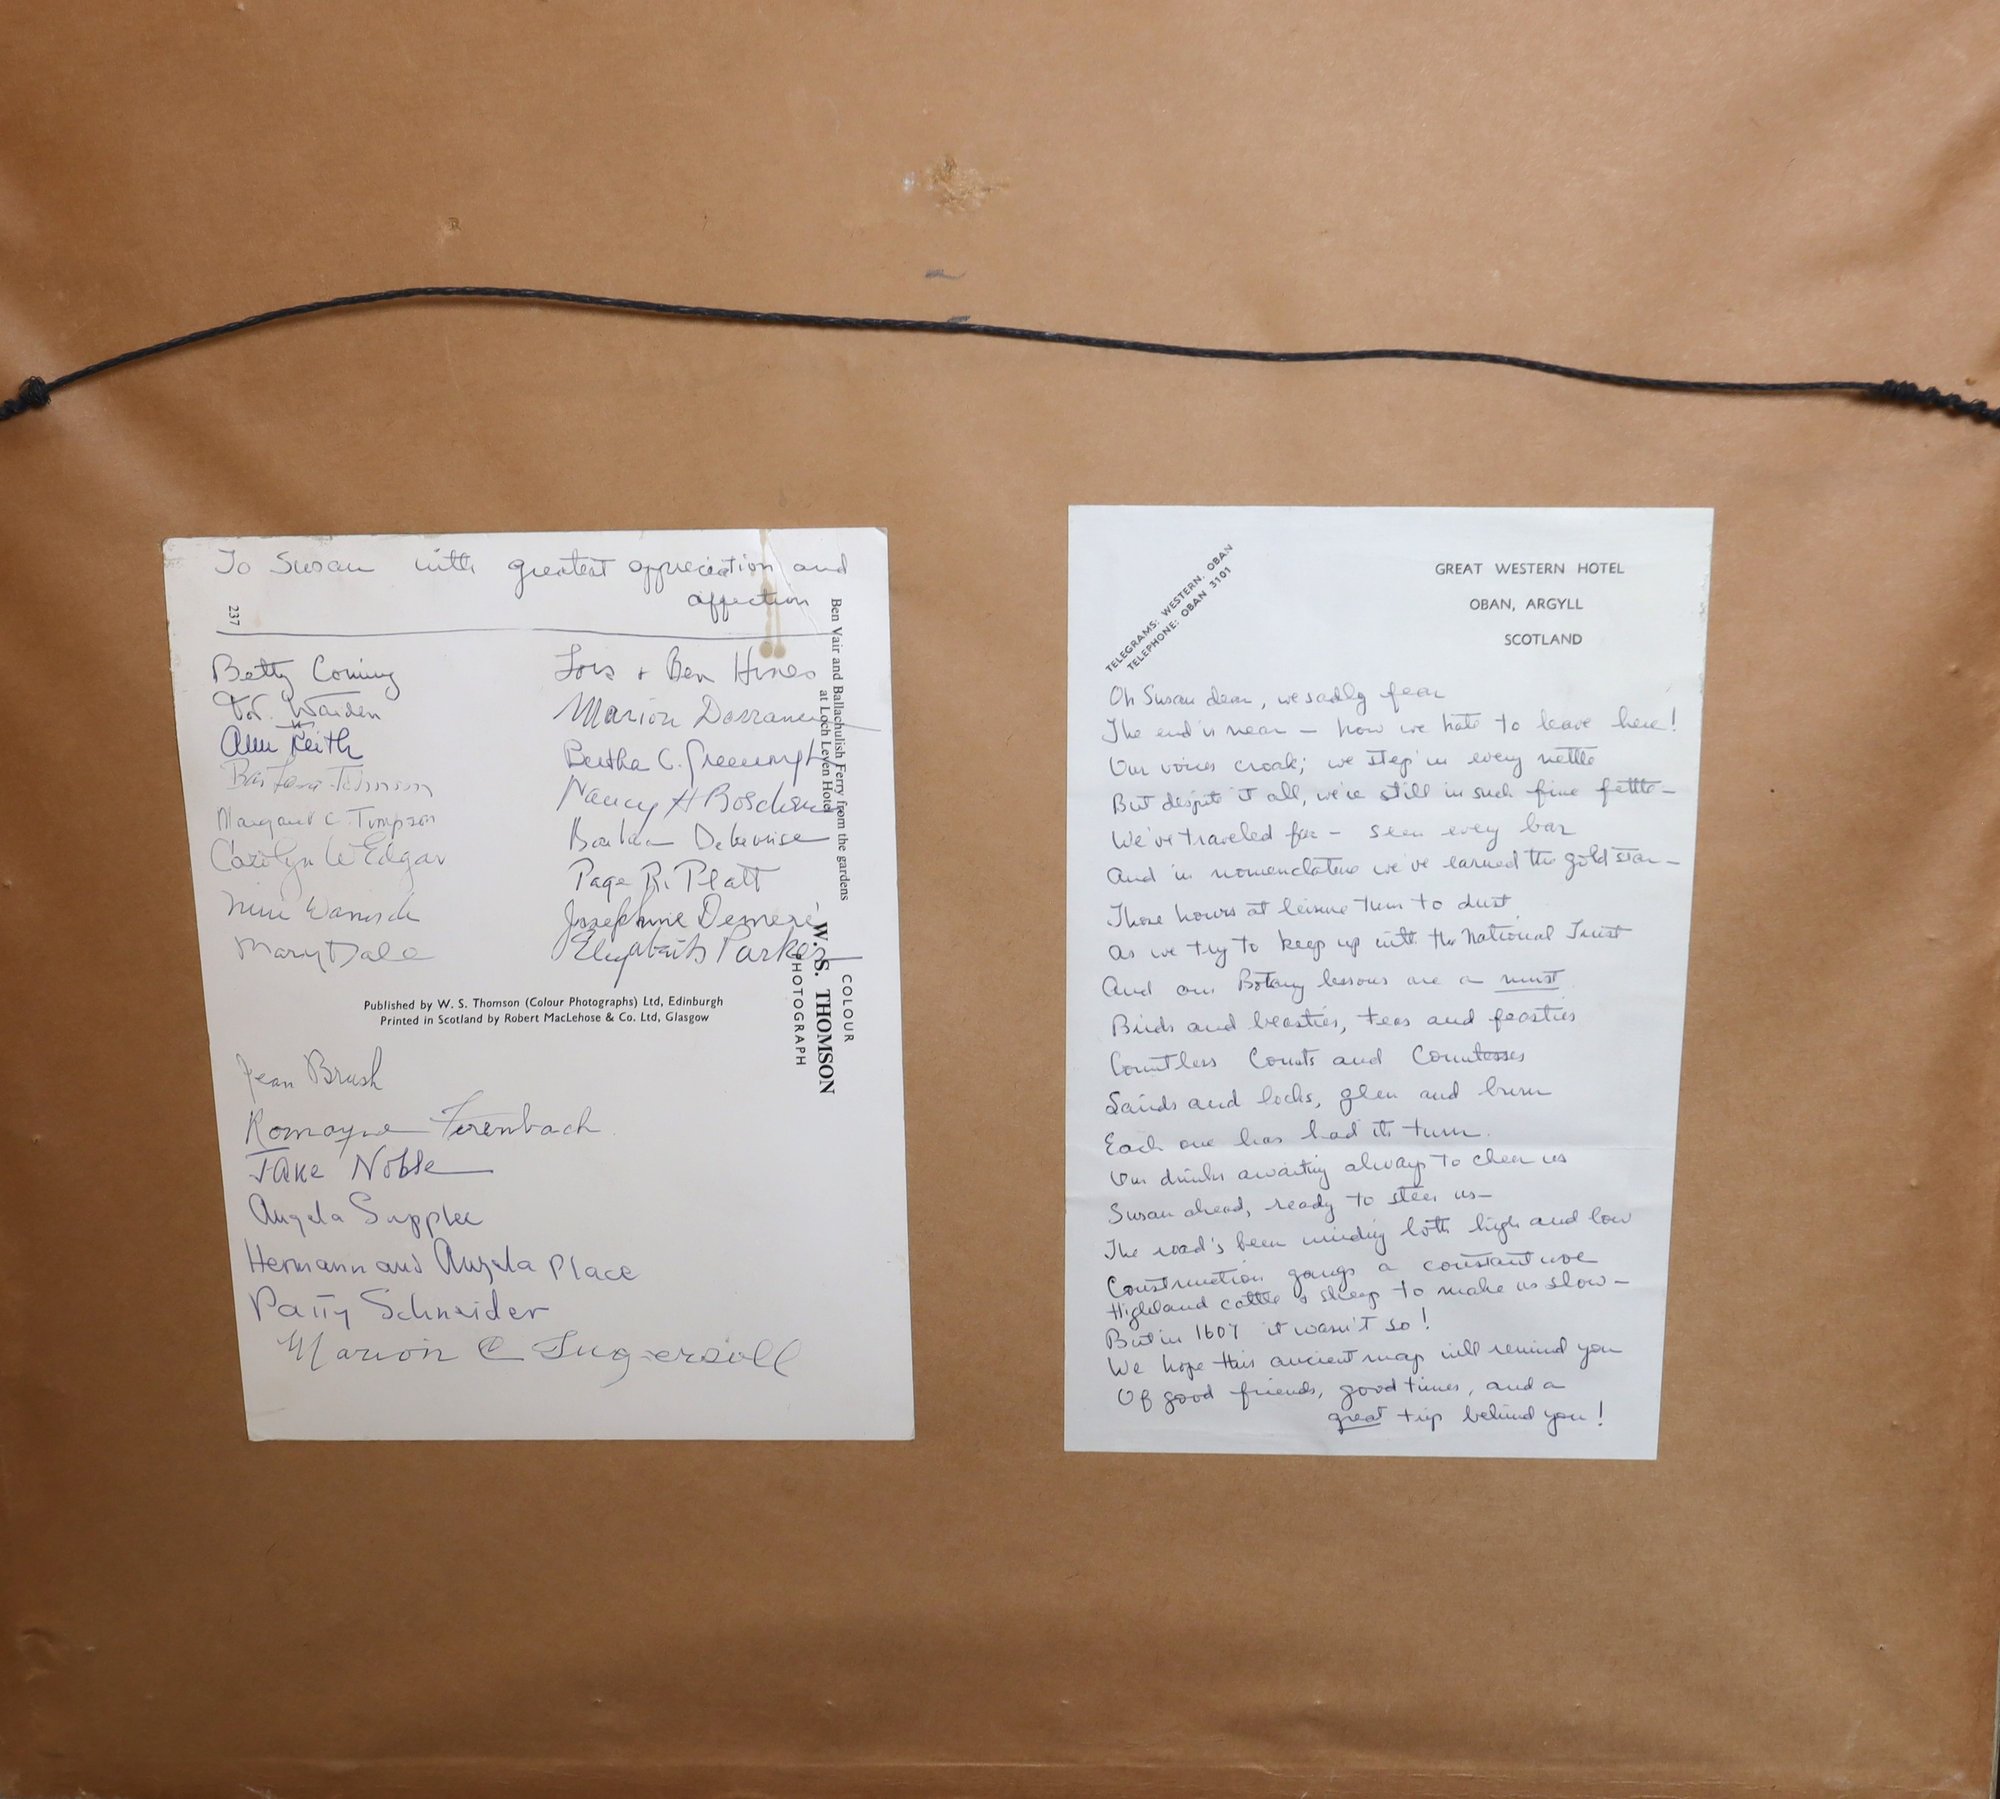 To Susan with greatest appreciation and
affection
237
Betty Corning
Waiden
Ann Keith
Margaret C. Timpson
Carolyn W Edgar
Mary Dale
Lois + Ben Hines
Marion Dorrance
Bertha C.
Nancy H
Page R. Platt
Josephine Demere
Elizabeth Parker
Ben Vair and Ballachulish Ferry from the gardens
at Loch Leven Hotel
W. S. THOMSON
COLOUR
PHOTOGRAPH
Published by W. S. Thomson (Colour Photographs) Ltd, Edinburgh
Printed in Scotland by Robert MacLehose & Co. Ltd, Glasgow
Jean Brush
Romayne Ferenbach
Jane Noble
Angela Supplee
Hermann and Angela Place
Patty Schneider
Marion C Ingersoll
TELEGRAMS: WESTERN, OBAN
TELEPHONE: OBAN 3101
GREAT WESTERN HOTEL
OBAN, ARGYLL
SCOTLAND
Oh Susan dear, we sadly fear
The end is near – how we hate to leave here!
Our voices croak; we step in every nettle
But despite it all, we're still in such fine fettle –
We've traveled far – seen every bar
And in nomenclature we've earned the gold star –
Those hours at leisure turn to dust
As we try to keep up with the National Trust
And our Botany lessons are a must
Birds and beasties, teas and feasties
Countless Counts and Countesses
Sands and lochs, glen and burn
Each one has had its turn.
Our drinks awaiting always to cheer us
Susan ahead, ready to steer us –
The road's been winding both high and low
Construction gangs a constant woe
Highland cattle & sheep to make us slow –
But in 1607 it wasn't so!
We hope this ancient map will remind you
Of good friends, good times, and a
great trip behind you!